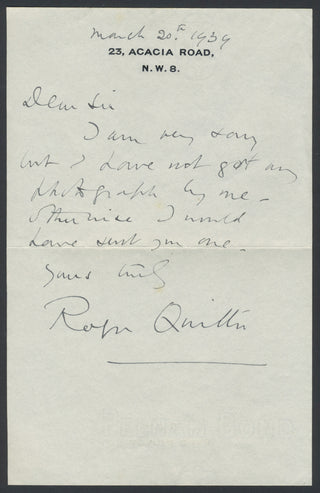 March 20th 1939
23, ACACIA ROAD,
N.W.8.
Dear Sir
I am very sorry
but I have not got any
photograph by me -
otherwise I would
have sent you one.
Yours truly
Roger Quilter